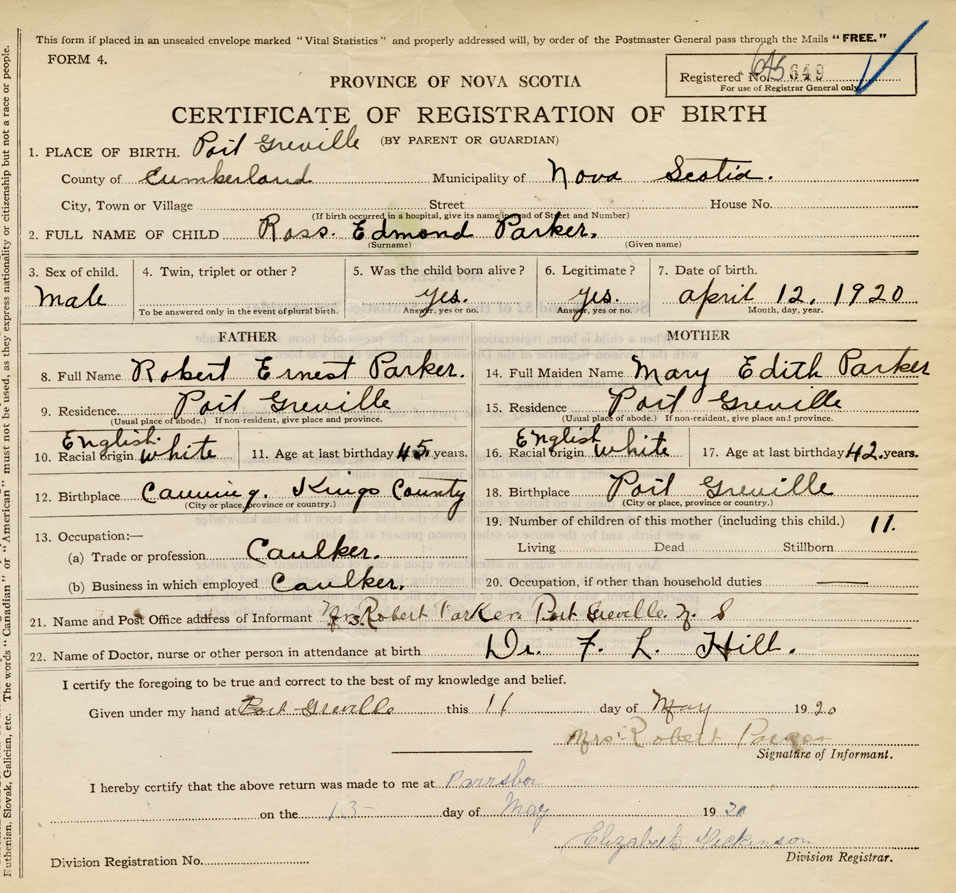 This form if placed in an unsealed envelope marked "Vital Statistics" and properly addressed will, by order of the Postmaster General pass through the Mails "FREE."
FORM 4.
Registered No. 649
For use of Registrar General only
PROVINCE OF NOVA SCOTIA
CERTIFICATE OF REGISTRATION OF BIRTH
(BY PARENT OR GUARDIAN)
1. PLACE OF BIRTH. Port Greville
County of Cumberland Municipality of Nova Scotia.
City, Town or Village Street House No.
(If birth occurred in a hospital, give its name instead of Street and Number)
2. FULL NAME OF CHILD Ross. Edmond Parker.
(Surname) (Given name)
3. Sex of child. 4. Twin, triplet or other? 5. Was the child born alive? 6. Legitimate? 7. Date of birth.
Male yes. yes. April 12, 1920
To be answered only in the event of plural birth. Answer, yes or no. Answer, yes or no. Month, day, year.
FATHER MOTHER
8. Full Name Robert Ernest Parker. 14. Full Maiden Name Mary Edith Parker
9. Residence Port Greville 15. Residence Port Greville
(Usual place of abode.) If non-resident, give place and province. (Usual place of abode.) If non-resident, give place and province.
English. English
10. Racial origin White 11. Age at last birthday 45 years. 16. Racial origin White 17. Age at last birthday 42 years.
12. Birthplace Canning. Kings County 18. Birthplace Port Greville
(City or place, province or country.) (City or place, province or country.)
13. Occupation:— 19. Number of children of this mother (including this child.) 11.
(a) Trade or profession Caulker. Living Dead Stillborn
(b) Business in which employed Caulker. 20. Occupation, if other than household duties
21. Name and Post Office address of Informant Mrs. Robert Parker Port Greville. N. S
22. Name of Doctor, nurse or other person in attendance at birth Dr. F. L. Hill.
I certify the foregoing to be true and correct to the best of my knowledge and belief.
Given under my hand at Port Greville this 11 day of May 1920
Mrs. Robert Parker
Signature of Informant.
I hereby certify that the above return was made to me at Parrsboro
on the 13 day of May 1920
Elizabeth
Division Registrar.
Division Registration No.
Ruthenian, Slovak, Galician, etc. The words "Canadian" or "American" must not be used, as they express nationality or citizenship but not a race or people.